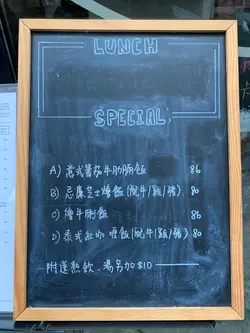 LUNCH
SPECIAL
A) 意式蕃茄牛肋腩飯 86
B) 忌廉芝士燴飯(配牛/雞/豬) 80
C) 燴牛脷飯 86
D) 泰式紅咖喱飯(配牛/雞/豬) 80
附送熱飲、湯另加$10